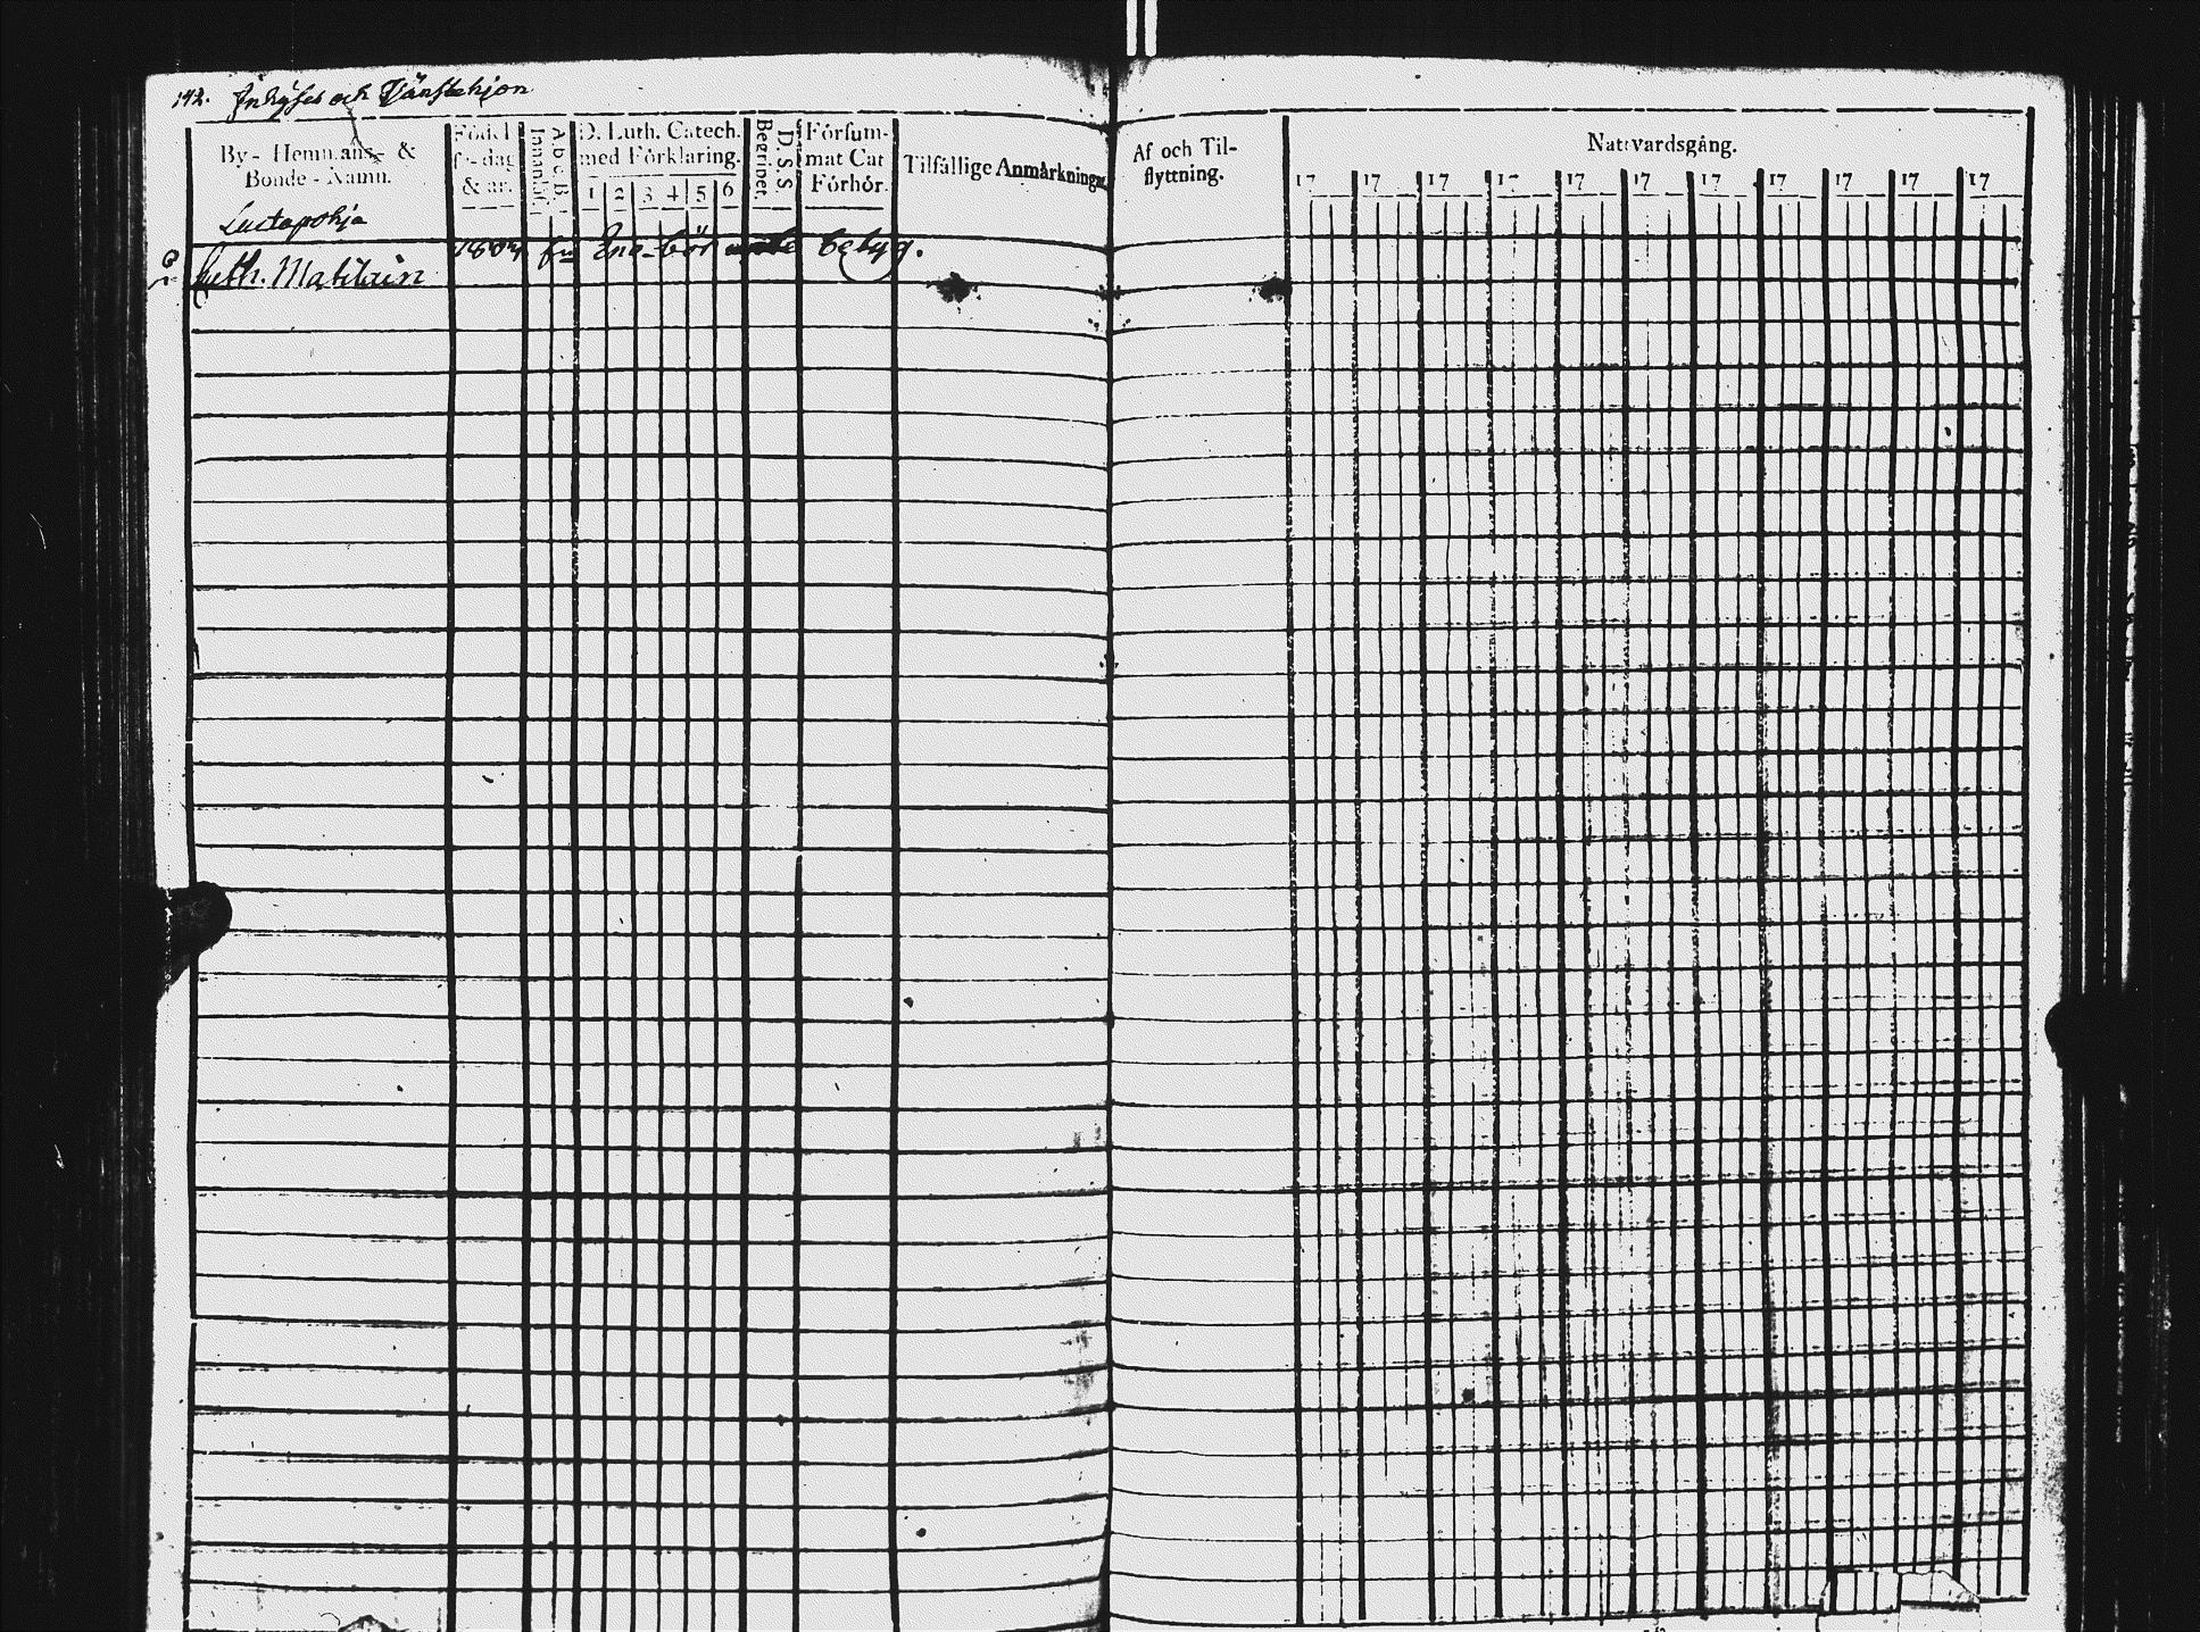 142. Inhyses och Tjänstehjon
By- Hemmans- & Bonde-Namn.
Födelse-dag & år.
Innanläs.
A b c B.
D. Luth. Catech. med Förklaring.
1 2 3 4 5 6
D. S. S. Begripet.
Försummat Cat Förhör.
Tilfällige Anmärkningar
Af och Tilflyttning.
Nattvardsgång.
17 17 17 17 17 17 17 17 17 17 17
Luctapohja
1804 fr Eno bör betyg.
Cath. Matilain